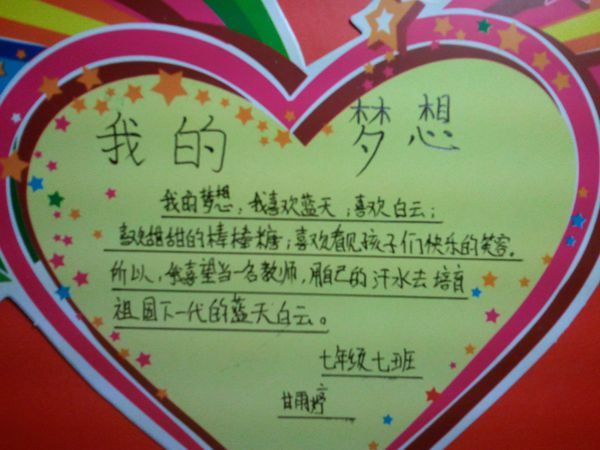 我的 梦想
我的梦想,我喜欢蓝天;喜欢白云;
喜欢甜甜的棒棒糖;喜欢看见孩子们快乐的笑容。
所以,我喜望当一名教师,用自己的汗水去培育
祖国下一代的蓝天白云。
七年级七班
甘雨婷